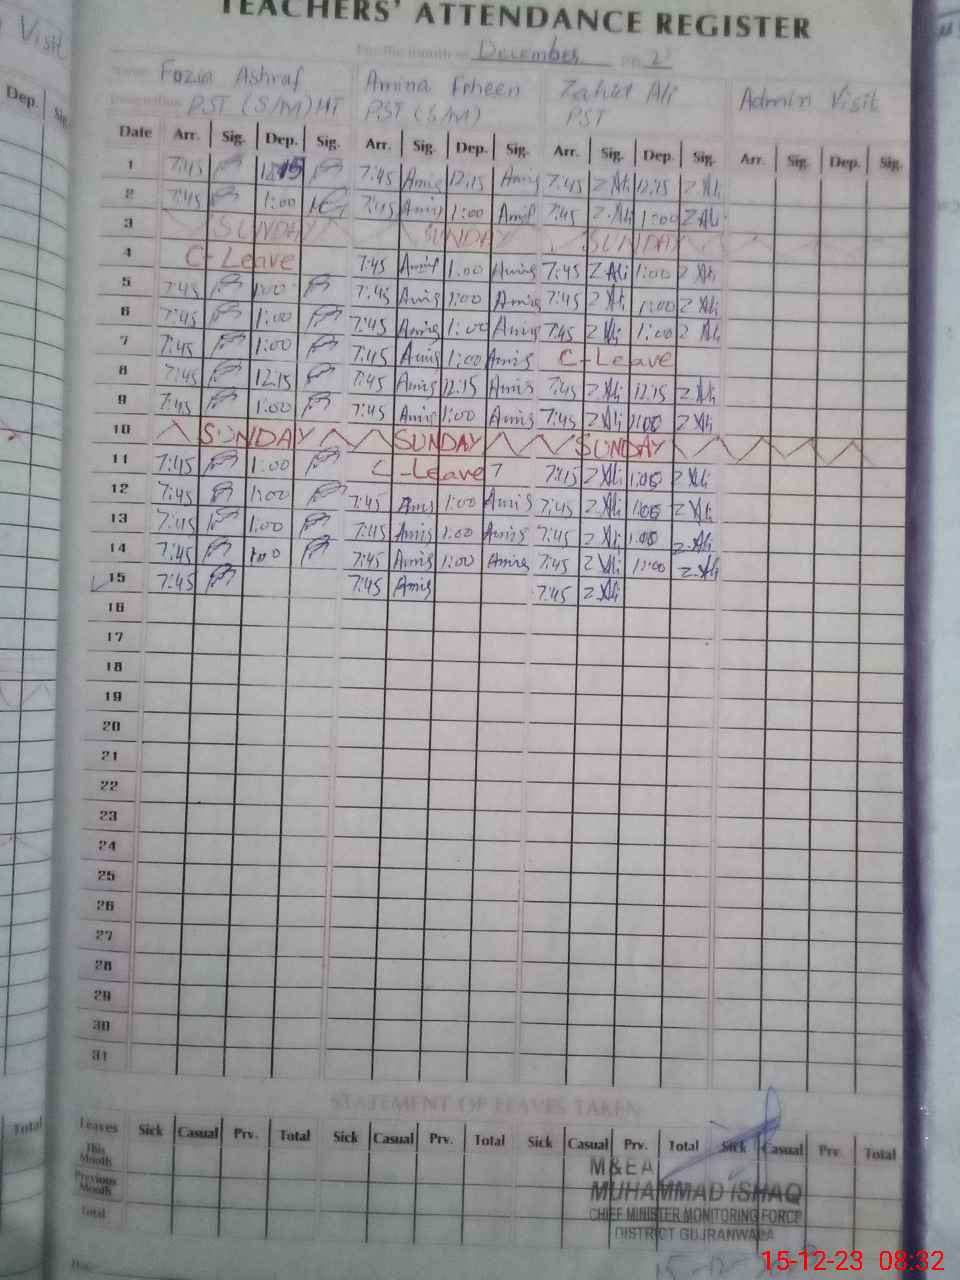 Visit
TEACHERS' ATTENDANCE REGISTER
For the month of December 202
Name Fozia Ashraf Zahid Ali Admin Visit
Designation PST (S/M) HT PST (S/M) PST
Dep. Sig.
Date Arr. Sig. Dep. Sig. Arr. Sig. Dep. Sig. Arr. Sig. Dep. Sig. Arr. Sig. Dep. Sig.
1 7:45 7:45 12.15 7:45 Z Ali 12.15 Z Ali
2 7:45 1:00 7:45 1:00 7:45 Z Ali 1:00 Z Ali
3 SUNDAY SUNDAY SUNDAY
4 C-Leave 7:45 1.00 7:45 Z Ali 1:00 Z Ali
5 7:45 1:00 7:45 1:00 7:45 Z Ali 1:00 Z Ali
6 7:45 1:00 7:45 1:00 7:45 Z Ali 1:00 Z Ali
7 7:45 1:00 7:45 1:00 C-Leave
8 7:45 12.15 7:45 12.15 7:45 Z Ali 12.15 Z Ali
9 7:45 1:00 7:45 1:00 7:45 Z Ali 1:00 Z Ali
10 SUNDAY SUNDAY SUNDAY
11 7:45 1:00 C-Leave 7:45 Z Ali 1:00 Z Ali
12 7:45 1:00 7:45 1:00 7:45 Z Ali 1:00 Z Ali
13 7:45 1:00 7:45 1:00 7:45 Z Ali 1:00 Z Ali
14 7:45 1:00 7:45 1:00 7:45 Z Ali 1:00 Z Ali
15 7:45 7:45 7:45 Z Ali
16
17
18
19
20
21
22
23
24
25
26
27
28
29
30
31
STATEMENT OF LEAVES TAKEN
Total
Leaves Sick Casual Prv. Total Sick Casual Prv. Total Sick Casual Prv. Total Sick Casual Prv. Total
This Month
Previous Month
Total
M&EA
MUHAMMAD ISHAQ
CHIEF MINISTER MONITORING FORCE
DISTRICT GUJRANWALA
15-12-23 08:32